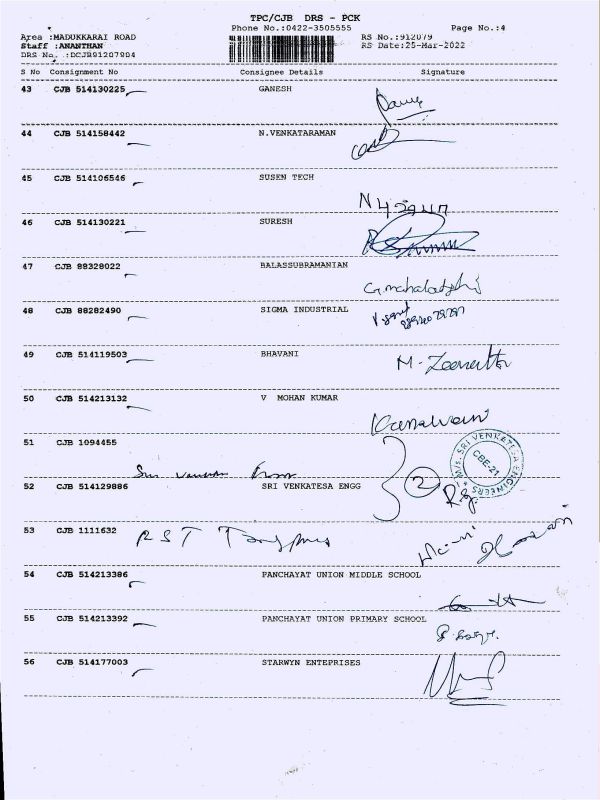 TPC/CJB DRS - PCK
Phone No.:0422-3505555 Page No.:4
Area :MADUKKARAI ROAD RS No.:912079
Staff :ANANTHAN RS Date:25-Mar-2022
DRS No. :DCJB91207904
S No Consignment No Consignee Details Signature
43 CJB 514130225 GANESH
44 CJB 514158442 N.VENKATARAMAN
45 CJB 514106546 SUSEN TECH
46 CJB 514130221 SURESH
47 CJB 88328022 BALASSUBRAMANIAN
48 CJB 88282490 SIGMA INDUSTRIAL
49 CJB 514119503 BHAVANI
M. Zeenath
50 CJB 514213132 V MOHAN KUMAR
51 CJB 1094455
M/s. SRI VENKATESA ENGINEERS
CBE-21
52 CJB 514129886 SRI VENKATESA ENGG
2
53 CJB 1111632
RST
54 CJB 514213386 PANCHAYAT UNION MIDDLE SCHOOL
55 CJB 514213392 PANCHAYAT UNION PRIMARY SCHOOL
56 CJB 514177003 STARWYN ENTEPRISES